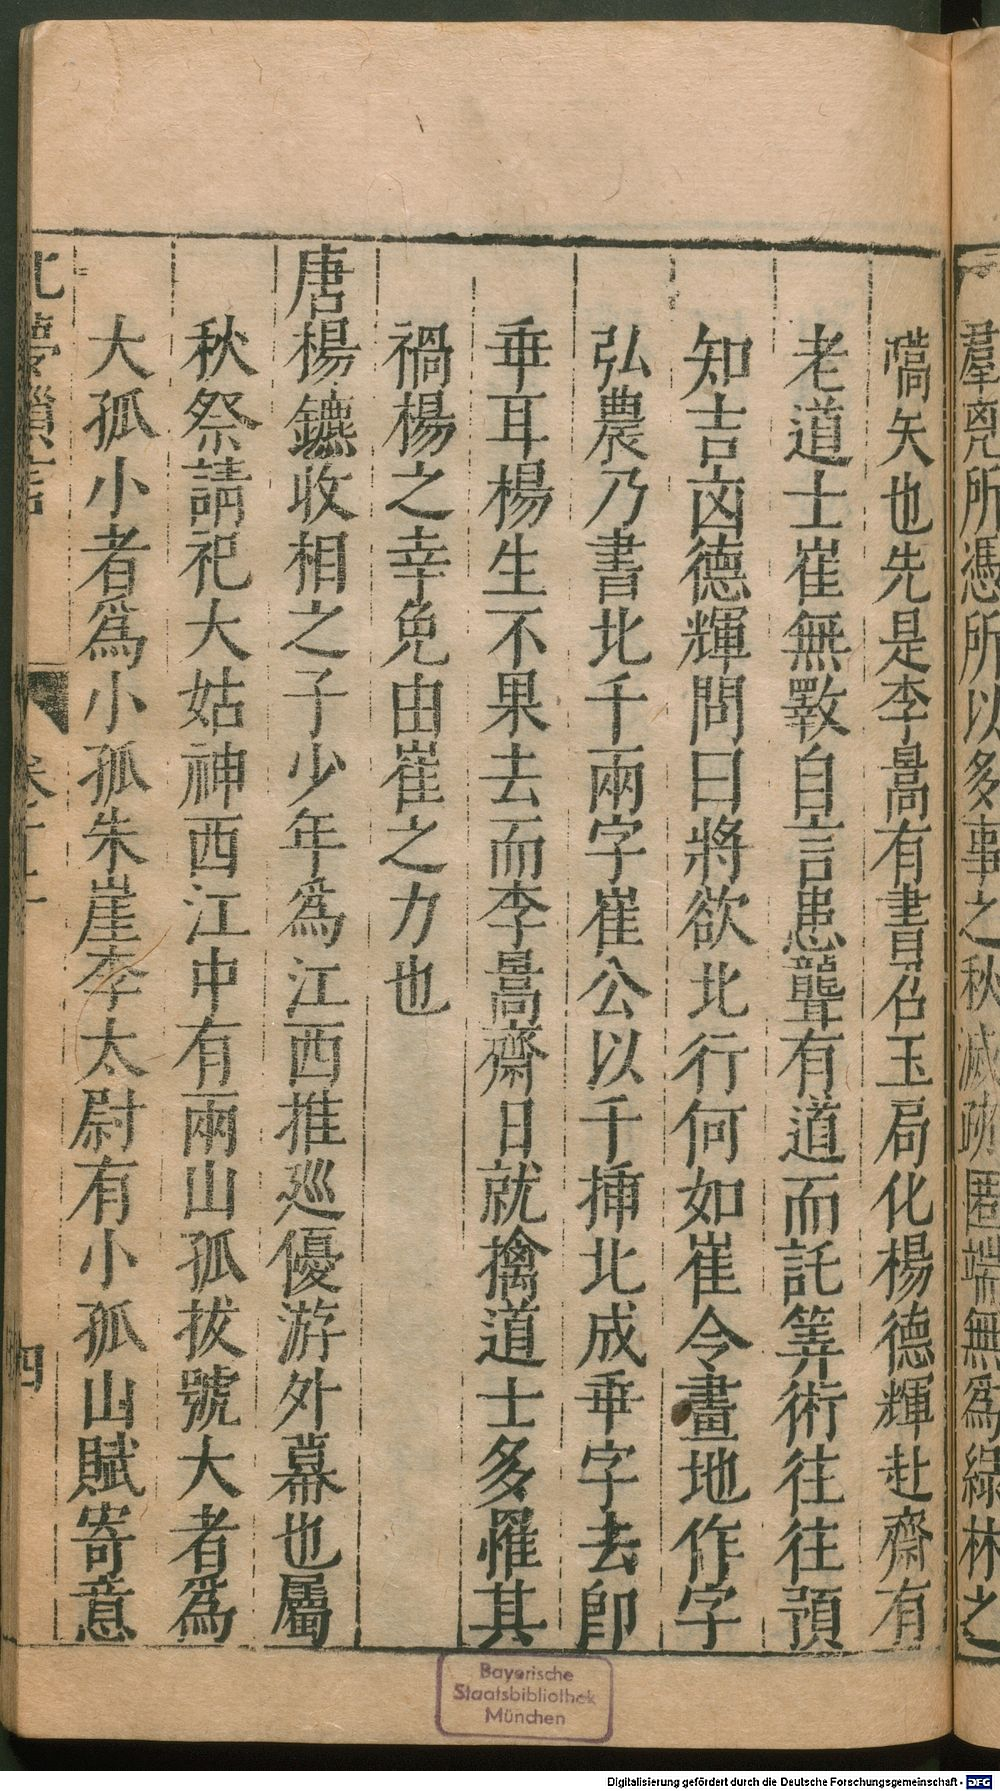 羣兇所憑所以多事之秋滅跡匿端無爲綠林之
嚆矢也先是李暠有書召玉局化楊德輝赴齋有
老道士崔無斁自言患聾有道而託筭術往往預
知吉凶德輝問曰將欲北行何如崔令畫地作字
弘農乃書北千兩字崔公以千揷北成乖字去卽
乖耳楊生不果去而李暠齋日就擒道士多罹其
禍楊之幸免由崔之力也
唐楊鑣收相之子少年爲江西推巡優游外幕也屬
秋祭請祀大姑神西江中有兩山孤拔號大者爲
大孤小者爲小孤朱崖李太尉有小孤山賦寄意
北夢瑣言
四
Bayerische
Staatsbibliothek
München
Digitalisierung gefördert durch die Deutsche Forschungsgemeinschaft - DFG